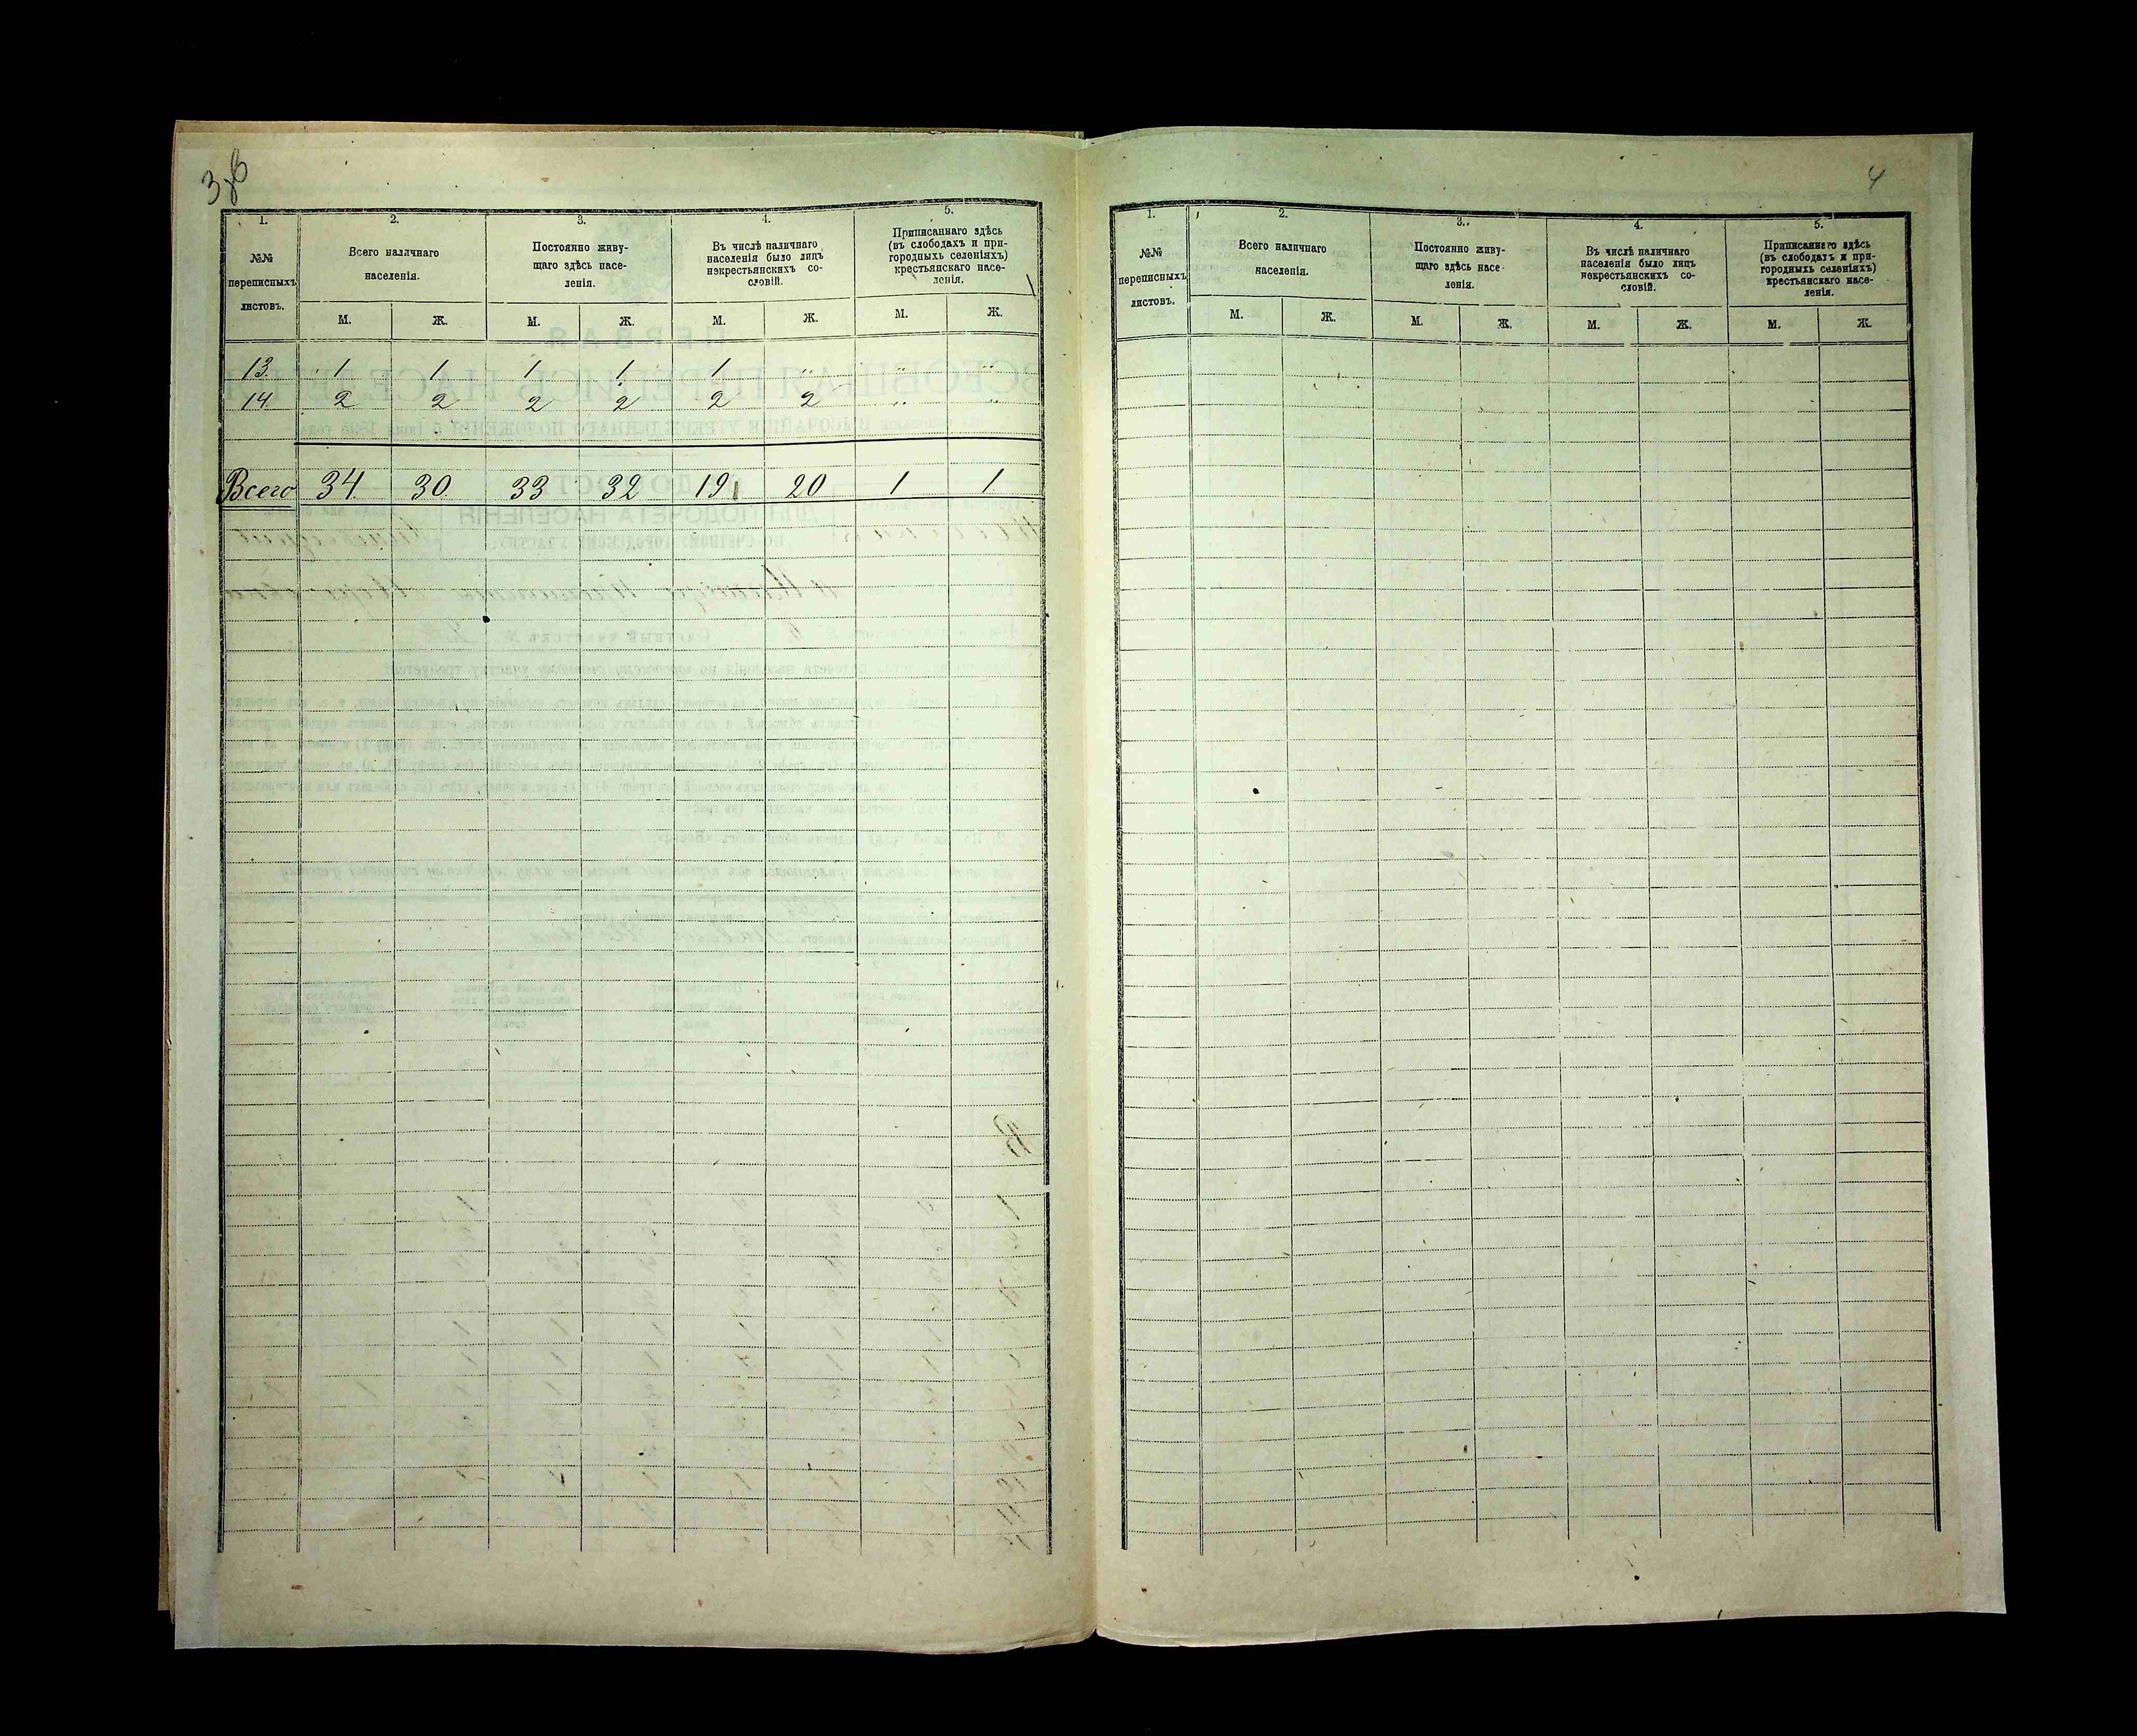 3об
1. 2. 3. 4. 5.
№№ переписныхъ листовъ.
Всего наличнаго населенія.
Постоянно живу-
щаго здѣсь насе-
ленія.
Въ числѣ наличнаго
населенія было лицъ
некрестьянскихъ со-
словій.
Приписаннаго здѣсь
(въ слободахъ и при-
городныхъ селеніяхъ)
крестьянскаго насе-
ленія.
М. Ж. М. Ж. М. Ж. М. Ж.
13. 1 1 1 1 1 " " "
14. 2 2 2 2 2 2 " "
Всего 34. 30. 33 32 19 20 1 1
4
1. 2. 3. 4. 5.
№№
переписныхъ
листовъ.
Всего наличнаго
населенія.
Постоянно живу-
щаго здѣсь насе-
ленія.
Въ числѣ наличнаго
населенія было лицъ
некрестьянскихъ со-
словій.
Приписаннаго здѣсь
(въ слободахъ и при-
городныхъ селеніяхъ)
крестьянскаго насе-
ленія.
М. Ж. М. Ж. М. Ж. М. Ж.